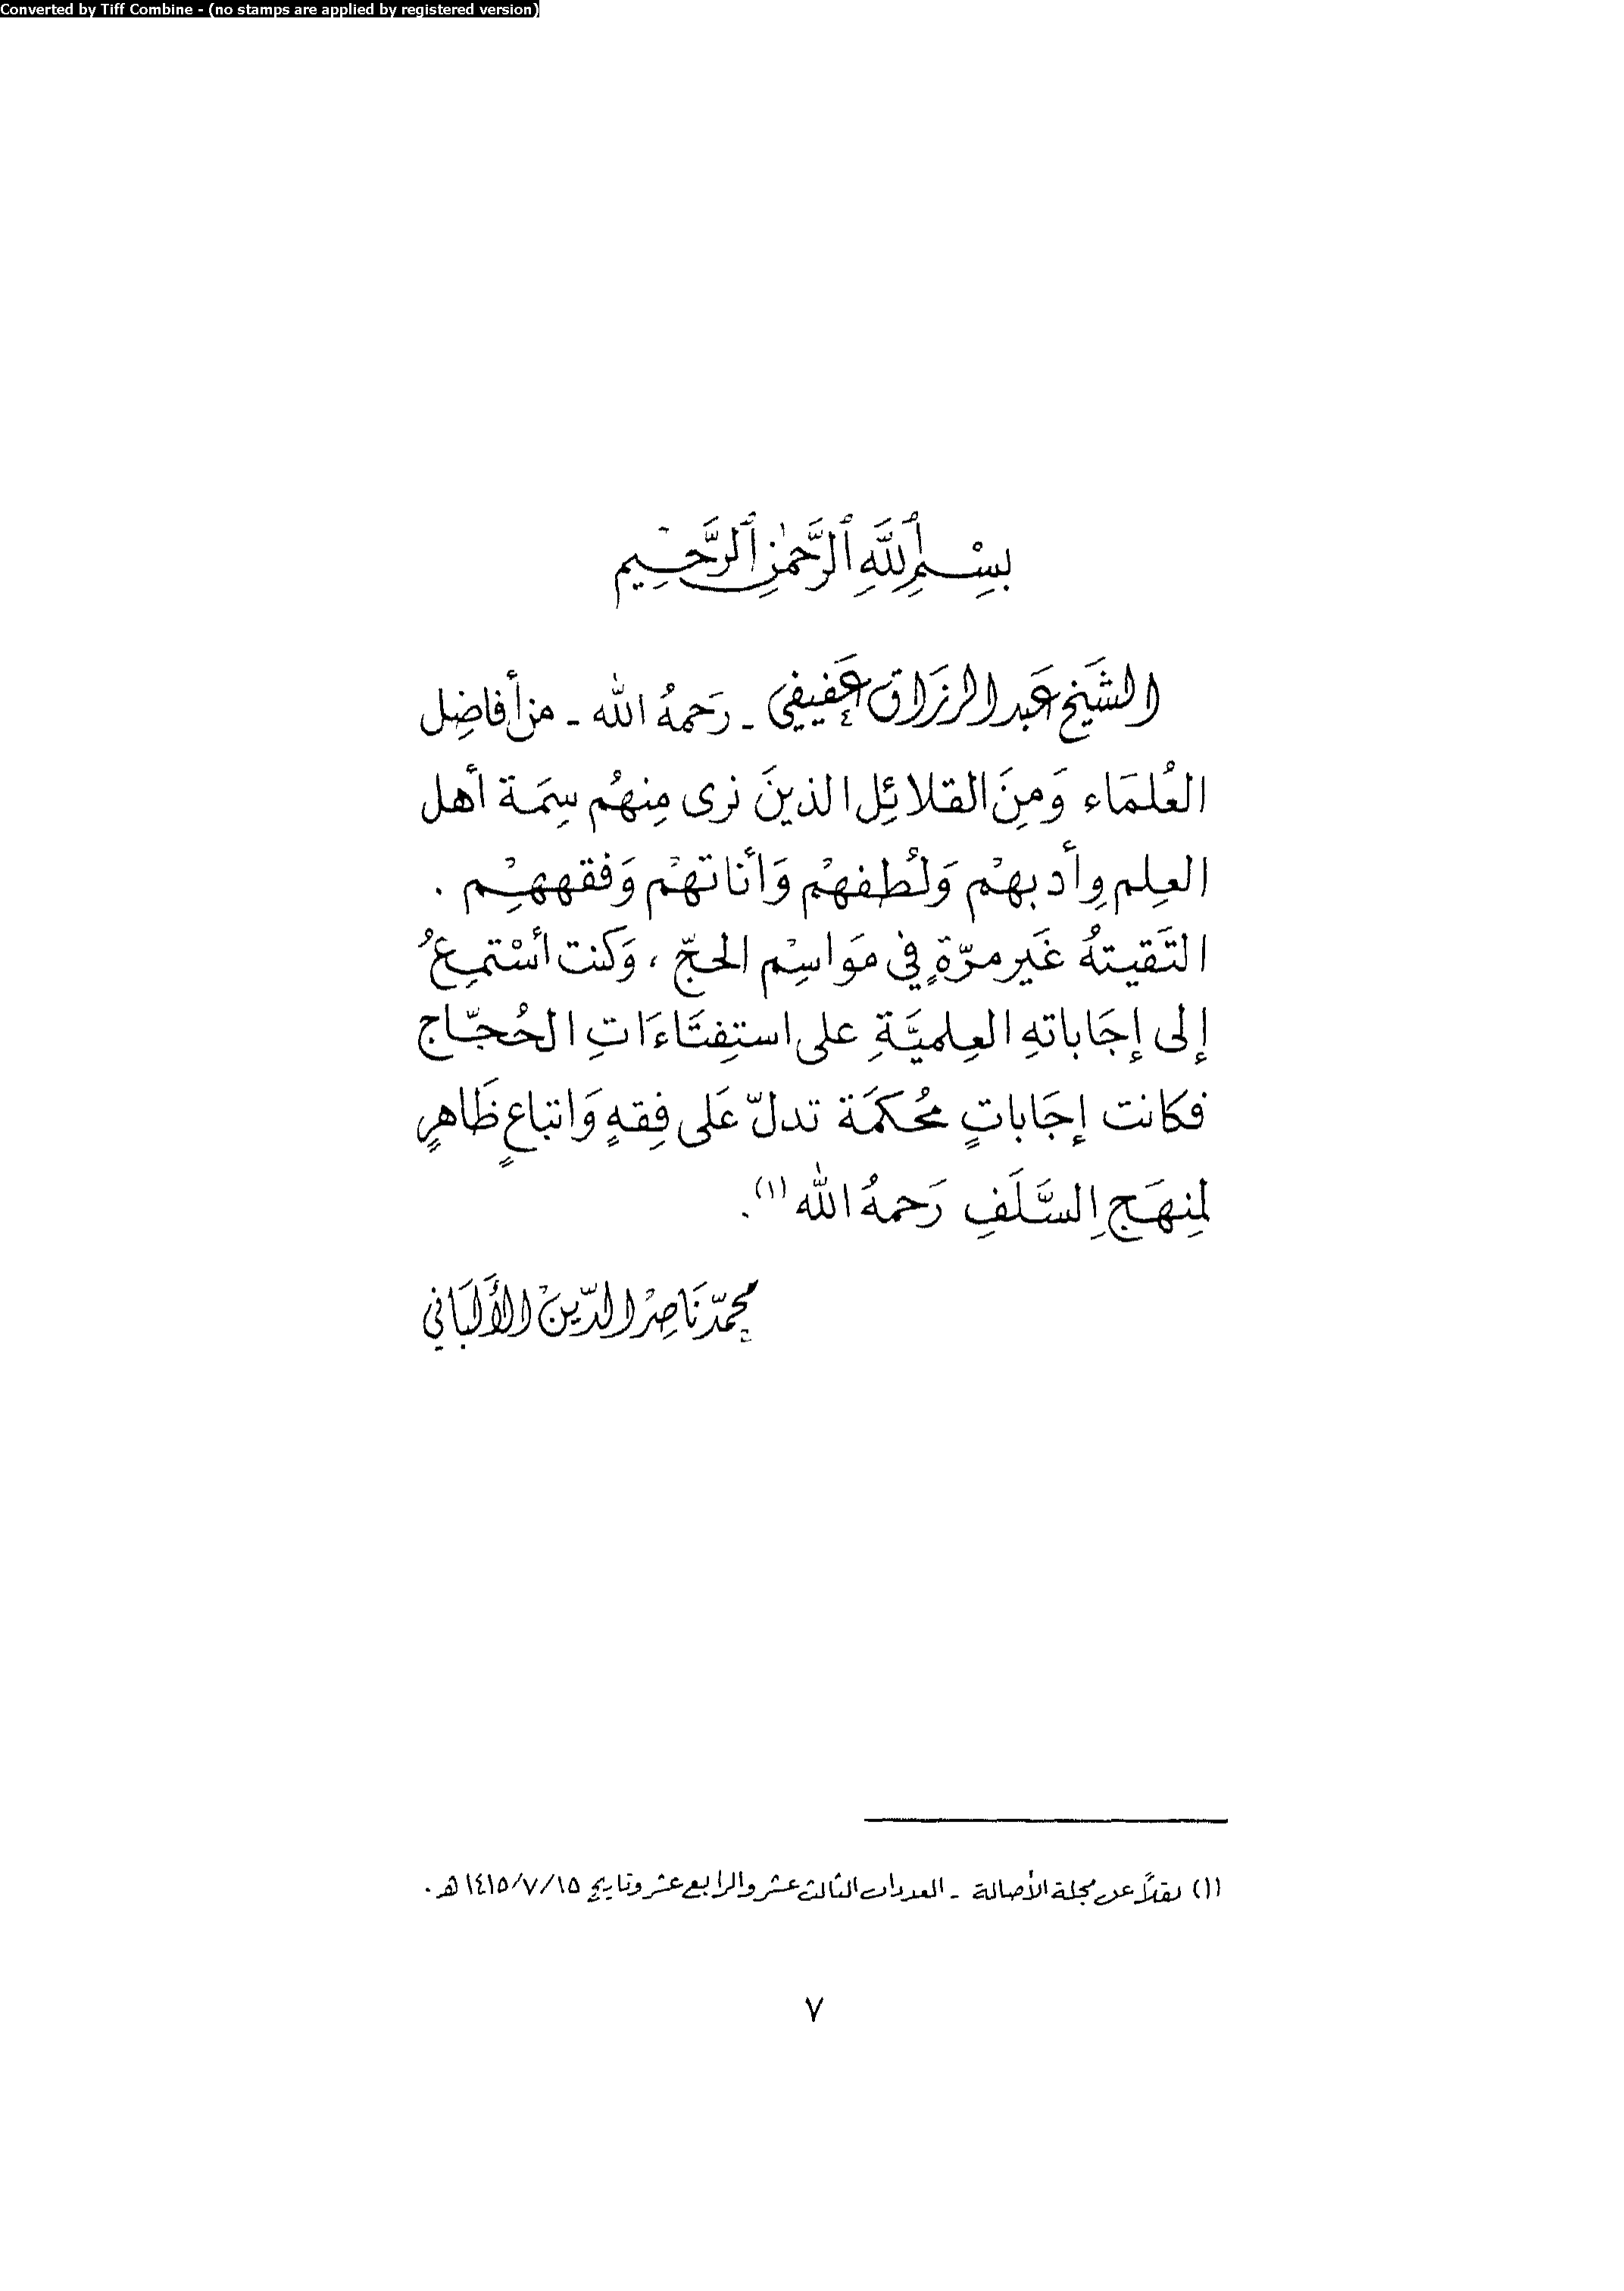 Converted by Tiff Combine - (no stamps are applied by registered version)
بِسْمِ ٱللَّهِ ٱلرَّحْمَٰنِ ٱلرَّحِيمِ
الشَّيخ عَبد الرزَاق عَفيفي - رَحمهُ الله - من أفاضِل
العُلمَاء وَمِنَ القلائِل الذينَ نرى مِنهُم سِمَة أهل
العِلم وأدبهمْ وَلُطفهمْ وَأناتهمْ وَفقههِمْ .
التَقيتهُ غَير مرّةٍ في موَاسِم الحجّ ، وَكنت أسْتمِعُ
إلى إجَاباتهِ العِلميَّةِ على استِفتَاءَاتِ الحُجّاج
فكانت إجَاباتٍ محُكمَة تدلّ عَلى فِقهٍ وَاتباعٍ ظَاهرٍ
لمِنهَجِ السَّلَفِ رَحمهُ الله (١).
محمّد نَاصِرْ الدّينْ الألبَاني
(١) نقلاً عن مجلة الأصالة - العددان الثالث عشر والرابع عشر وتاريخ ١٤١٥/٧/١٥ هـ .
٧